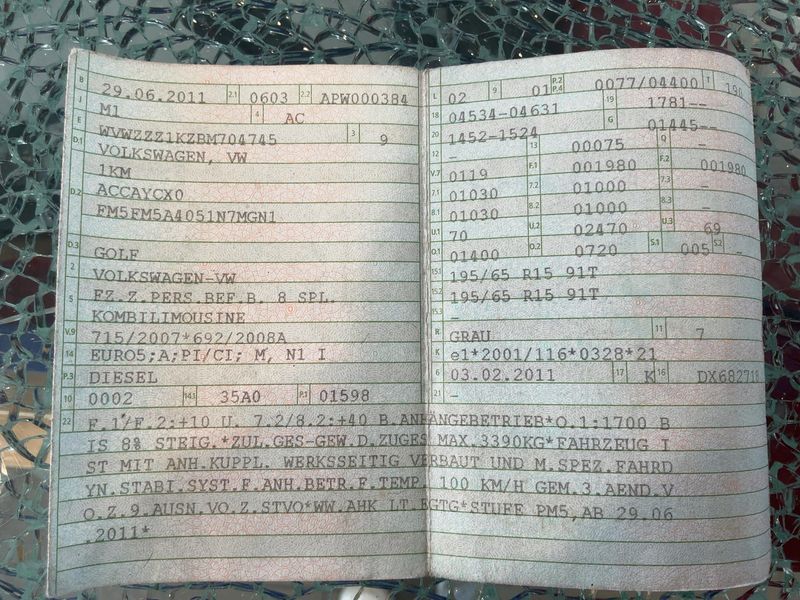 B 29.06.2011 2.1 0603 2.2 APW000384
J M1 4 AC
E WVWZZZ1KZBM704745 3 9
D.1 VOLKSWAGEN, VW
1KM
D.2 ACCAYCX0
FM5FM5A4051N7MGN1
D.3 GOLF
2 VOLKSWAGEN-VW
5 FZ.Z.PERS.BEF.B. 8 SPL.
KOMBILIMOUSINE
V.9 715/2007*692/2008A
14 EURO5;A;PI/CI; M, N1 I
P.3 DIESEL
10 0002 14.1 35A0 P.1 01598
L 02 9 01 P.2 P.4 0077/04400 T 190
18 04534-04631 19 1781--
20 1452-1524 G 01445--
12 - 13 00075 Q -
V.7 0119 F.1 001980 F.2 001980
7.1 01030 7.2 01000 7.3 -
8.1 01030 8.2 01000 8.3 -
U.1 70 U.2 02470 U.3 69
O.1 01400 O.2 0720 S.1 005 S.2 -
15.1 195/65 R15 91T
15.2 195/65 R15 91T
15.3 -
R GRAU 11 7
K e1*2001/116*0328*21
6 03.02.2011 17 K 16
21 -
22 F.1/F.2:+10 U. 7.2/8.2:+40 B.ANHÄNGEBETRIEB*O.1:1700 B
IS 8% STEIG.*ZUL.GES-GEW.D.ZUGES MAX.3390KG*FAHRZEUG I
ST MIT ANH.KUPPL. WERKSSEITIG VERBAUT UND M.SPEZ.FAHRD
YN.STABI.SYST.F.ANH.BETR.F.TEMP. 100 KM/H GEM.3.AEND.V
O.Z.9.AUSN.VO.Z.STVO*WW.AHK LT.EGTG*STUFE PM5,AB 29.06
.2011*